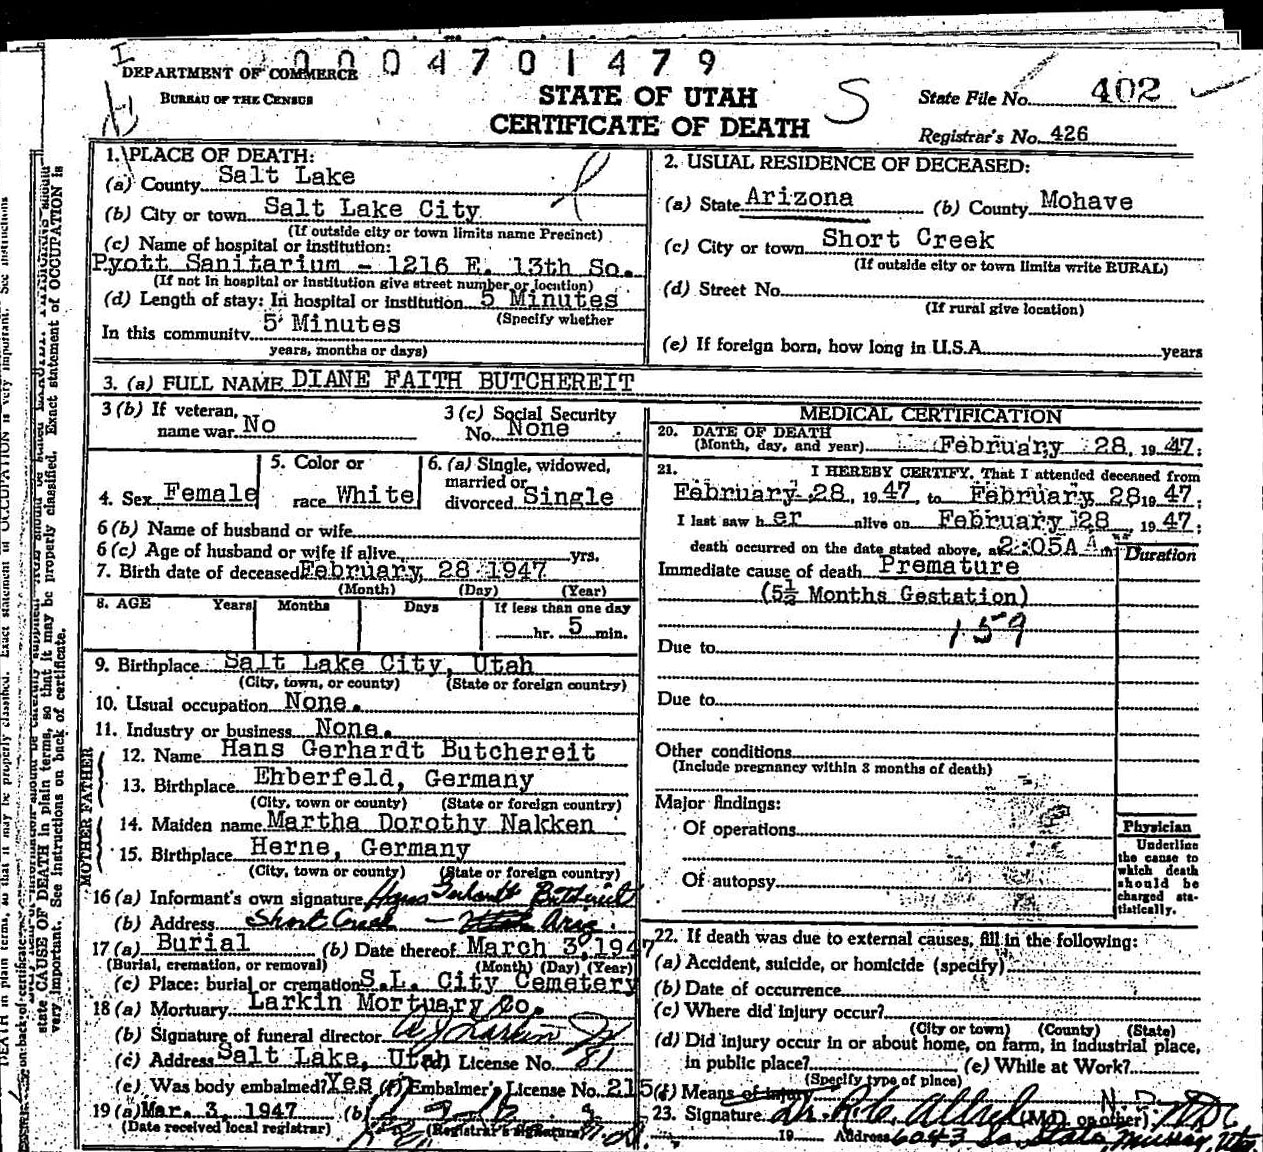 0004701479
DEPARTMENT OF COMMERCE
BUREAU OF THE CENSUS
STATE OF UTAH
CERTIFICATE OF DEATH
S
State File No. 402
Registrar's No. 426
1. PLACE OF DEATH:
(a) County Salt Lake
(b) City or town Salt Lake City
(If outside city or town limits name Precinct)
(c) Name of hospital or institution:
Pyott Sanitarium - 1216 E. 13th So.
(If not in hospital or institution give street number or location)
(d) Length of stay: In hospital or institution 5 Minutes
(Specify whether
In this community 5 Minutes
years, months or days)
2. USUAL RESIDENCE OF DECEASED:
(a) State Arizona (b) County Mohave
(c) City or town Short Creek
(If outside city or town limits write RURAL)
(d) Street No.
(If rural give location)
(e) If foreign born, how long in U.S.A. years
3. (a) FULL NAME DIANE FAITH BUTCHEREIT
3 (b) If veteran, name war No
3 (c) Social Security No. None
4. Sex Female
5. Color or race White
6. (a) Single, widowed, married or divorced Single
6 (b) Name of husband or wife
6 (c) Age of husband or wife if alive yrs.
7. Birth date of deceased February 28 1947
(Month) (Day) (Year)
8. AGE Years Months Days If less than one day
hr. 5 min.
9. Birthplace Salt Lake City, Utah
(City, town, or county) (State or foreign country)
10. Usual occupation None.
11. Industry or business None.
FATHER
12. Name Hans Gerhardt Butchereit
13. Birthplace Ehberfeld, Germany
(City, town or county) (State or foreign country)
MOTHER
14. Maiden name Martha Dorothy Nakken
15. Birthplace Herne, Germany
(City, town or county) (State or foreign country)
16 (a) Informant's own signature Hans Gerhardt Butchereit
(b) Address Short Creek - Utah Ariz.
17 (a) Burial (b) Date thereof March 3, 1947
(Burial, cremation, or removal) (Month) (Day) (Year)
(c) Place: burial or cremation S.L. City Cemetery
18 (a) Mortuary Larkin Mortuary Co.
(b) Signature of funeral director
(c) Address Salt Lake, Utah (d) License No. 81
(e) Was body embalmed? Yes (f) Embalmer's License No. 215
19 (a) Mar. 3, 1947 (b)
(Date received local registrar) (Registrar's signature)
MEDICAL CERTIFICATION
20. DATE OF DEATH
(Month, day, and year) February 28, 1947;
21. I HEREBY CERTIFY, That I attended deceased from
February 28, 1947, to February 28 1947;
I last saw her alive on February 28, 1947;
death occurred on the date stated above, at 2:05A m
Duration
Immediate cause of death Premature
(5½ Months Gestation)
159
Due to
Due to
Other conditions
(Include pregnancy within 3 months of death)
Major findings:
Of operations
Of autopsy
Physician
Underline
the cause to
which death
should be
charged sta-
tistically.
22. If death was due to external causes, fill in the following:
(a) Accident, suicide, or homicide (specify)
(b) Date of occurrence
(c) Where did injury occur?
(City or town) (County) (State)
(d) Did injury occur in or about home, on farm, in industrial place,
in public place? (e) While at Work?
(Specify type of place)
(f) Means of injury
23. Signature Dr. R. C. Allred (M.D. or other) N.D.
19 Address 6043 So State, Murray, Utah
state CAUSE OF DEATH in plain terms, so that it may be properly classified. Exact statement of OCCUPATION is
very important. See instructions on back of certificate.